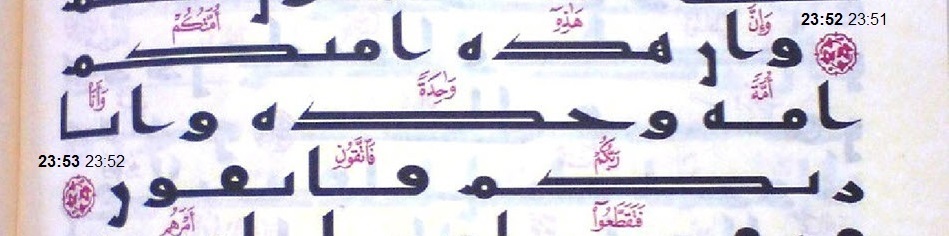 23:52 23:51
وَإِنَّ هَٰذِهِ أُمَّتُكُمْ
وان هذه امتكم
أُمَّةً وَٰحِدَةً وَأَنَا
امه وحده وانا
رَبُّكُمْ فَٱتَّقُونِ
ربكم فاتقون
23:53 23:52
فَتَقَطَّعُوٓا۟ أَمْرَهُم